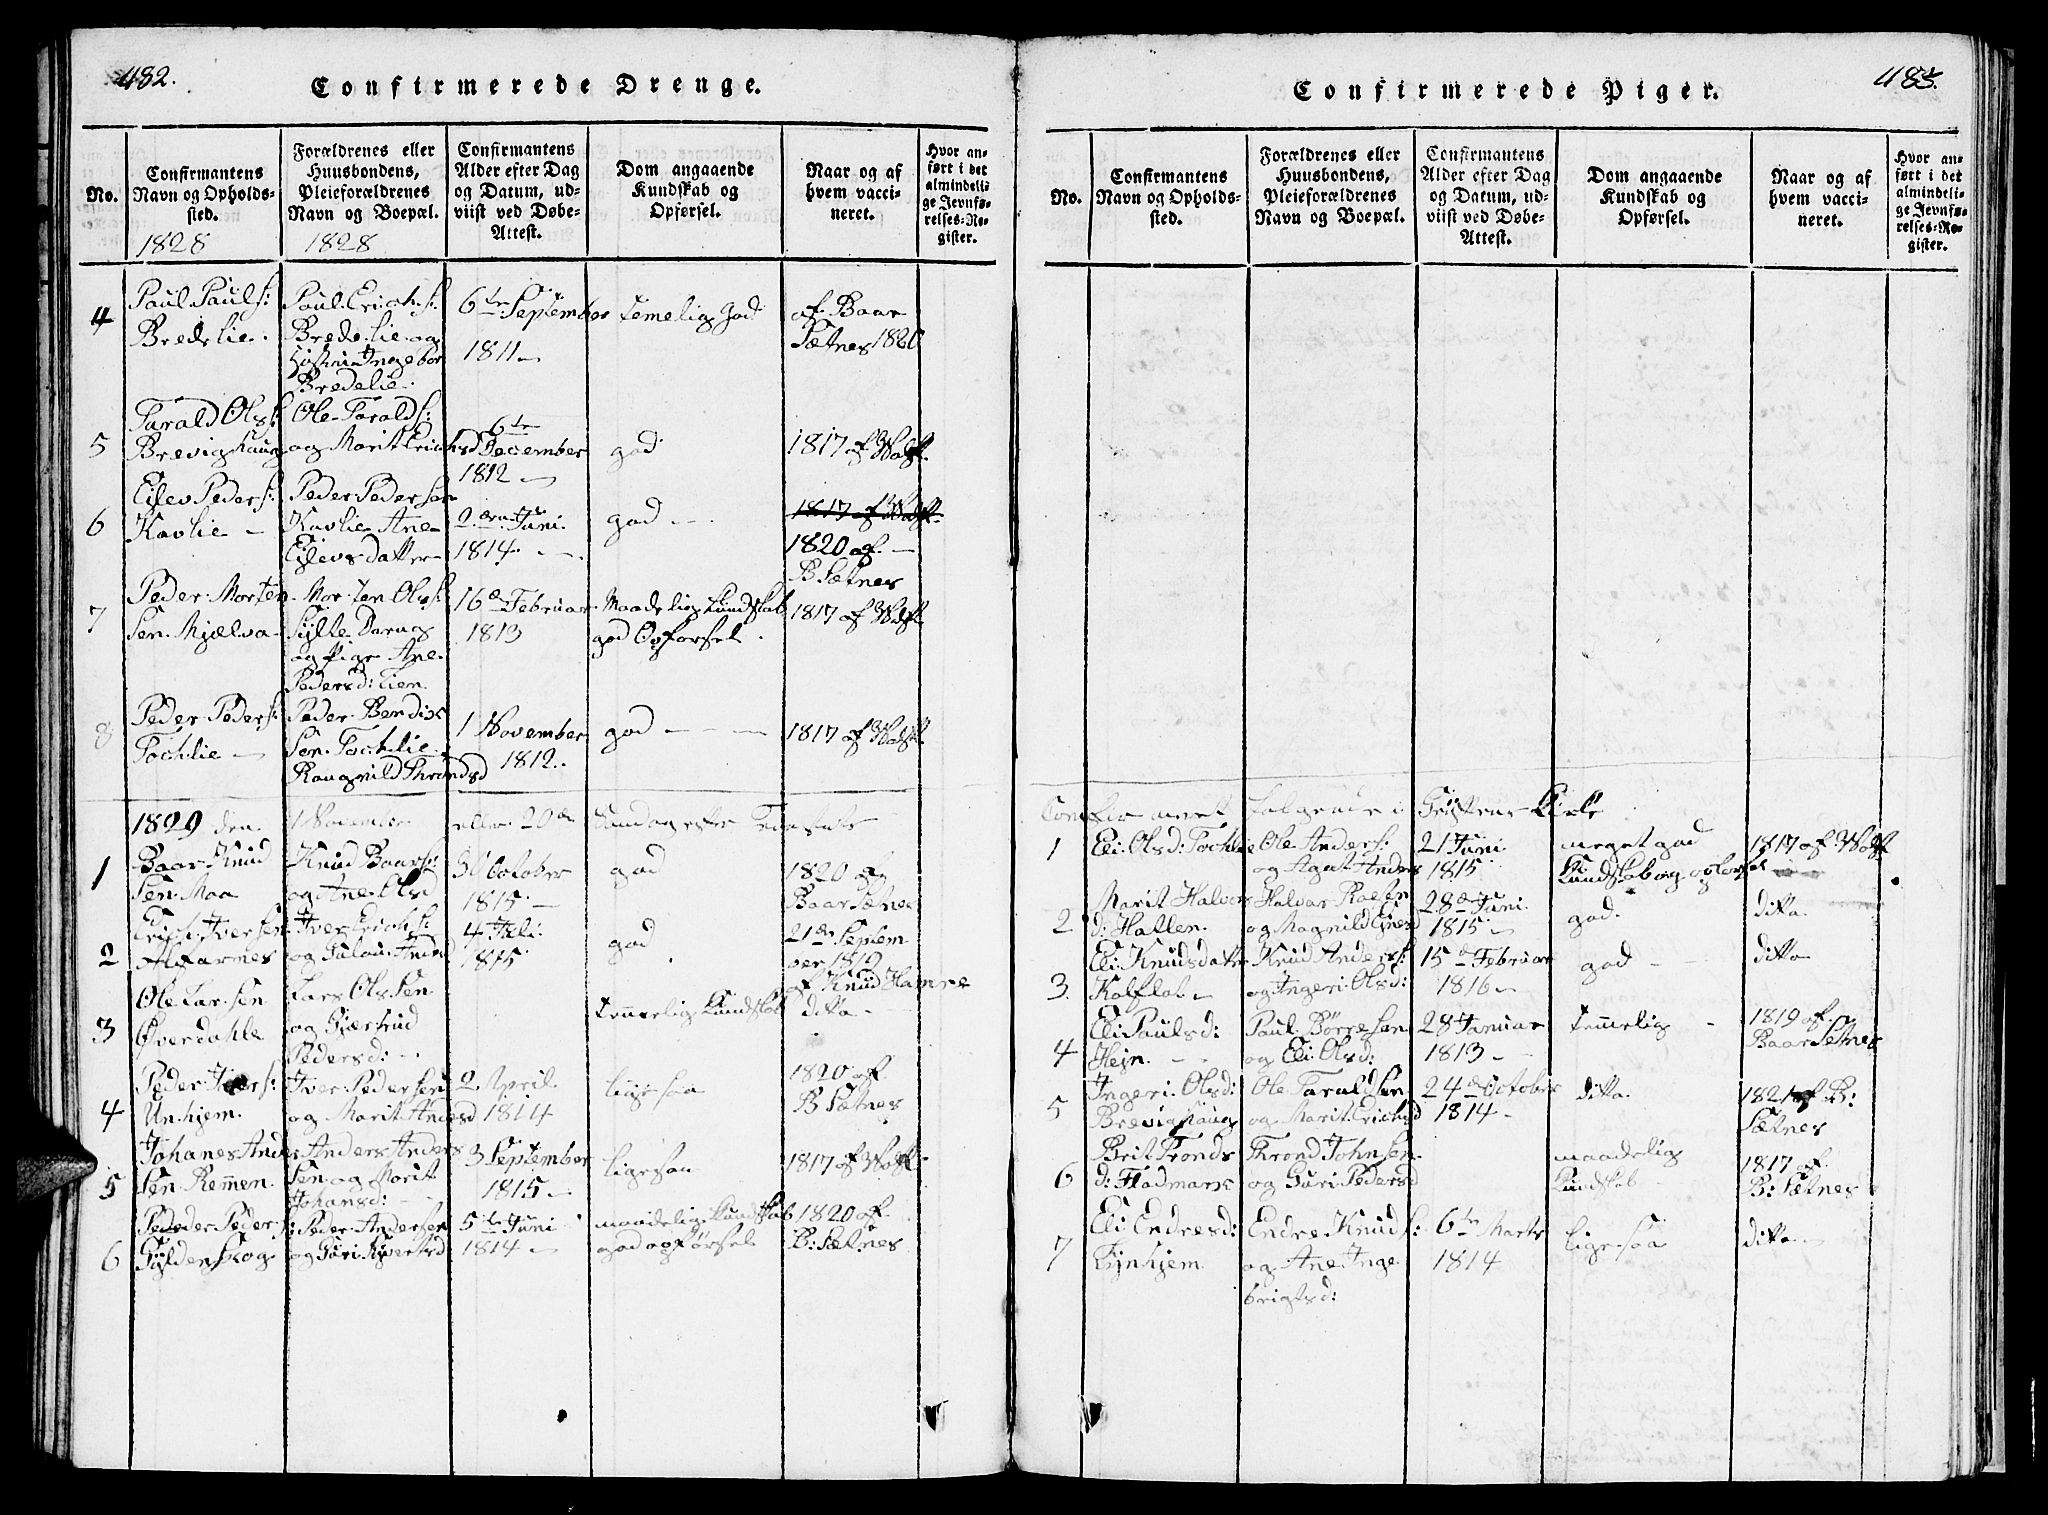 482.
Confirmerede Drenge.
No.
Confirmantens
Navn og Opholds-
sted.
1828
Forældrenes eller
Huusbondens,
Pleieforældrenes
Navn og Boepæl.
1828
Confirmantens
Alder efter Dag
og Datum, ud-
viist ved Døbe-
Attest.
Dom angaaende
Kundskab og
Opførsel.
Naar og af
hvem vacci-
neret.
Hvor an-
ført i det
almindeli-
ge Jevnfø-
relses-Re-
gister.
4
Paul Pauls:
Bredelie
Paul Erichs:
Bredelie og
Ingebor
Bredelie
6te September
1811
temelig god
af Baar
Sætnes 1820
5
Tarald Ols:
Brevighaug
Ole Taralds:
og Marit Erichsd
6te
December
1812
god
1817 af Wolft.
6
Eilev Peders:
Kavlie
Peder Pedersen
Kavlie Ane
Eilevsdatter
2den Juni
1814
god
1817 af Wolft.
1820 af
B Sætnes
7
Peder Morten
Sen Mjelva
Morten Ols:
Sylte
og Pige Ane
Pedersd: Lien
16de Februar
1813
Maadelig Kundskab
god Opførsel
1817 af Wolft
8
Peder Peders:
Tochlie
Peder Bendix
Sen Tochlie
Raugnild Throndsd
1 November
1812
god
1817 af Wolft
1829 den 1 November eller 20de Sundag efter Trinitatis
1
Baar Knud
Sen Moa
Knud Baars:
og Ane Olsd
October
1815
god
1820 af
Baar Sætnes
2
Erich Iversen
Alfarnes
Iver Erichs:
og Andsd
4 Juli
1815
god
21de Septem
ber 1819
af Knud Hamre
3
Ole Larsen
Øverdahle
Lars Olssen
og Gjertrud
Pedersd:
temmelig Kundskab
ditto
4
Peder Ivers:
Unhjem
Iver Pedersen
og Marit Andsd
2 April
1814
ligesaa
1820 af
B Sætnes
5
Johanes Anders
Sen Remmen
Anders Anders
Sen og Marit
Johansd:
3 September
1815
ligesaa
1817 af Wolft
6
Pededer Peders:
Gyldenskog
Peder Andersen
og Guri
5te Juni
1814
maadelig Kundskab
god opførsel
1820 af
B: Sætnes
485.
Confirmerede Piger.
No.
Confirmantens
Navn og Opholds-
sted.
Forældrenes eller
Huusbondens,
Pleieforældrenes
Navn og Boepæl.
Confirmantens
Alder efter Dag
og Datum, ud-
viist ved Døbe-
Attest.
Dom angaaende
Kundskab og
Opførsel.
Naar og af
hvem vacci-
neret.
Hvor an-
ført i det
almindeli-
ge Jevnfø-
relses-Re-
gister.
Confirmeret følgende i Kirke
1
Eli Olsd: Tochlie
Ole Anders:
og Agat Anders
21 Juni
1815
meget god
Kundskab og opførsel
1817 af Wolft
2
Marit Halvors
d: Hatlen
Halvor
og Magnild
28de Juni
1815
god
ditto
3.
Eli Knudsdatter
Kalflot
Knud Anders:
og Ingeri Olsd:
15de Februar
1816
god
ditto
4
Eli Paulsd:
Hejn
Paul Børresen
og Eli Olsd:
28 Januar
1813
temmelig
1819 af
Baar Sætnes
5
Ingeri Olsd:
Brevighaug
Ole Taraldsen
og Marit Erichsd
24de October
1814
ditto
1821 af B:
Sætnes
6
Brit Tronds
d: Fladmark
Thrond Johnsen
og Guri Pedersd
maadelig
Kundskab
1817 af
B: Sætnes
7
Eli Endresd:
Lynhjem
Endre Knuds:
og Ane Inge
brigtsd:
6te Marts
1814
ligesaa
ditto